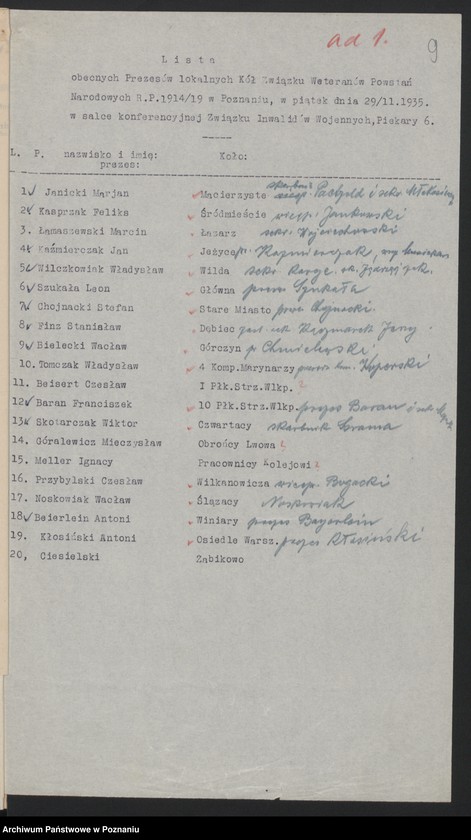 ad 1.
9
Lista
obecnych Prezesów lokalnych Kół Związku Weteranów Powstań
Narodowych R.P.1914/19 w Poznaniu, w piątek dnia 29/11.1935.
w salce konferencyjnej Związku Inwalidów Wojennych,Piekary 6.
L. P. nazwisko i imię: Koło:
prezes:
1. Janicki Marjan Macierzyste skarbnik i sekr.
2. Kasprzak Feliks Śródmieście wicep. Jankowski
3. Łamaszewski Marcin Łazarz sekr. Wojciechowski
4. Kaźmierczak Jan Jeżyce p. Kazmierczak,
5. Wilczkowiak Władysław Wilda sekr.
6. Szukała Leon Główna prezes Szukała
7. Chojnacki Stefan Stare Miasto prezes Chojnacki
8. Finz Stanisław Dębiec Kaczmarek Jerzy
9. Bielecki Wacław Górczyn p. Chmielewski
10. Tomczak Władysław 4 Komp.Marynarzy Kaporski
11. Beisert Czesław I Płk.Strz.Wlkp. ?
12. Baran Franciszek 10 Płk.Strz.Wlkp. prezes Baran i
13. Skotarczak Wiktor Czwartacy skarbnik Grama
14. Góralewicz Mieczysław Obrońcy Lwowa ?
15. Meller Ignacy Pracownicy Kolejowi ?
16. Przybylski Czesław Wilkanowicza wicep. Bogacki
17. Noskowiak Wacław Ślązacy Noskowiak
18. Beierlein Antoni Winiary prezes Bayerlein
19. Kłosiński Antoni Osiedle Warsz. prezes Kłosiński
20, Ciesielski Żabikowo
Archiwum Państwowe w Poznaniu